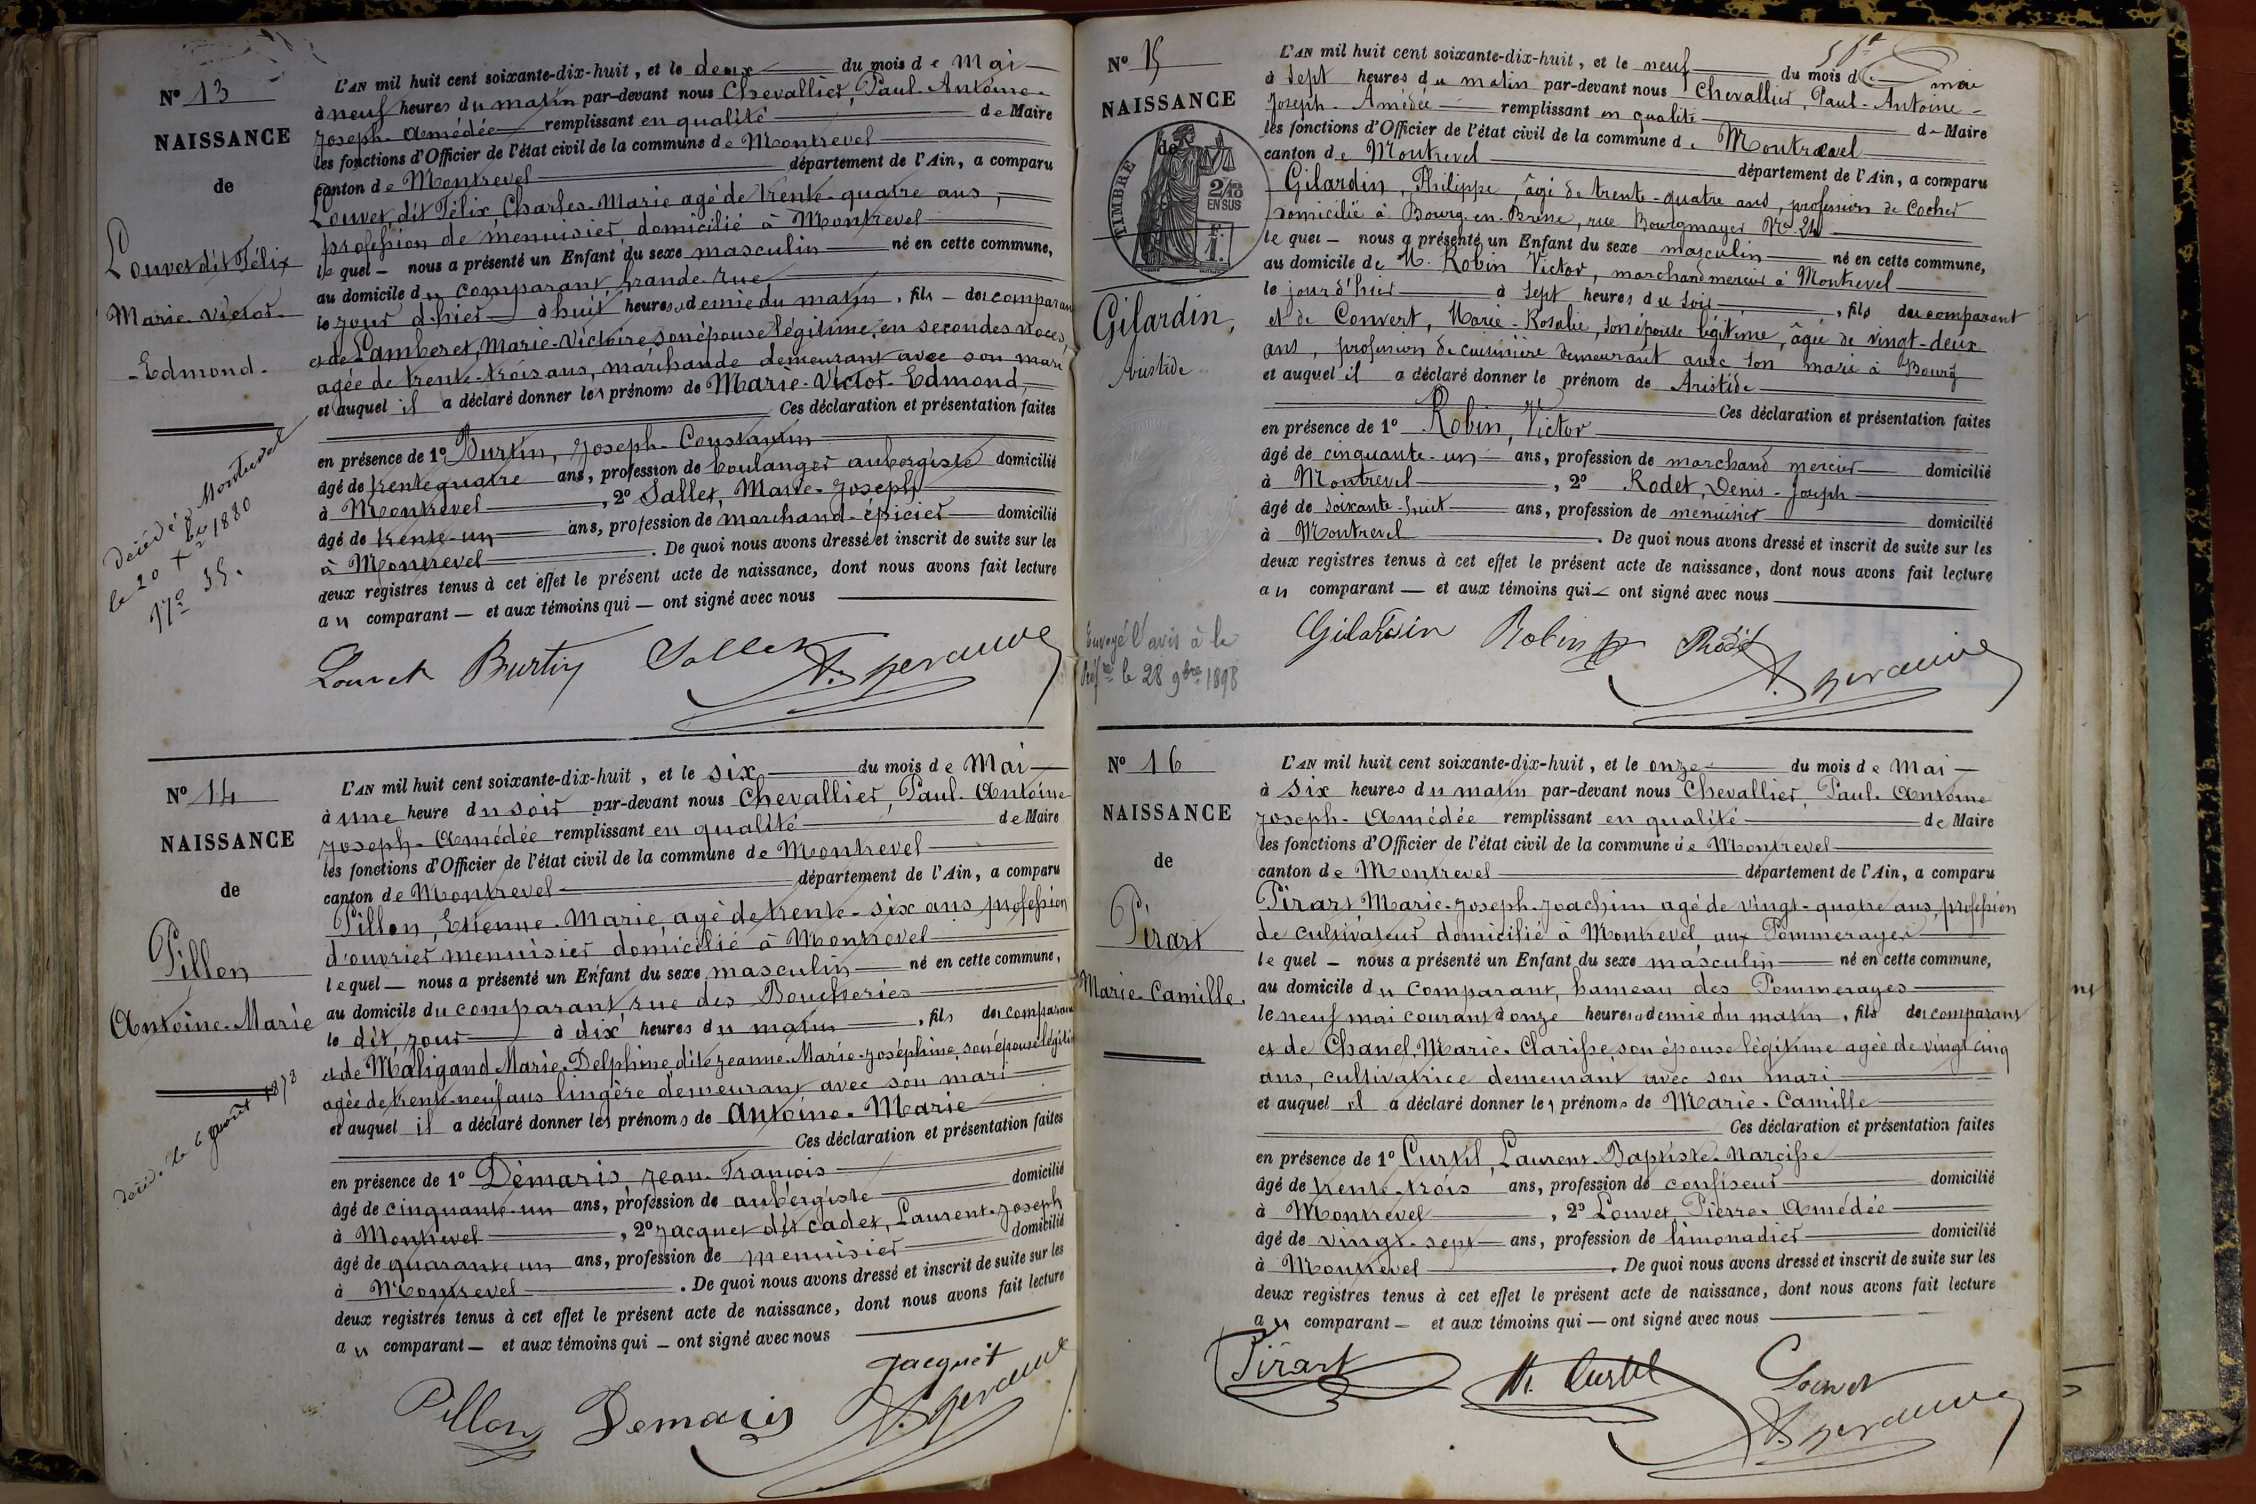 N° 13
NAISSANCE
de
Louvet dit Félix
Marie-Victor-
-Edmond.
décédé à Montrevel
le 20 1880
N° 35.
L'AN mil huit cent soixante-dix-huit, et le deux du mois de Mai
à neuf heures du matin par-devant nous Chevallier, Paul-Antoine-
Joseph-Amédée remplissant en qualité de Maire
les fonctions d'Officier de l'état civil de la commune de Montrevel
canton de Montrevel département de l'Ain, a comparu
Louvet dit Félix, Charles-Marie agé de trente-quatre ans,
profession de menuisier domicilié à Montrevel
lequel — nous a présenté un Enfant du sexe masculin né en cette commune,
au domicile du comparant, grande rue
le jour d'hier à huit heures demie du matin, fils des comparant
et de Lamberet, Marie-Victoire son épouse légitime en secondes noces,
agée de trente-trois ans, marchande demeurant avec son mari
et auquel il a déclaré donner les prénoms de Marie-Victor-Edmond,
Ces déclaration et présentation faites
en présence de 1° Burtin, Joseph-Constantin
âgé de trente quatre ans, profession de boulanger aubergiste domicilié
à Montrevel, 2° Sallet, Marie-Joseph
âgé de trente-un ans, profession de marchand-épicier domicilié
à Montrevel. De quoi nous avons dressé et inscrit de suite sur les
deux registres tenus à cet effet le présent acte de naissance, dont nous avons fait lecture
au comparant — et aux témoins qui — ont signé avec nous
Louvet Burtin Sallet
N° 14
NAISSANCE
de
Pillon
Antoine-Marie
décéd. le 6 août 1878
L'AN mil huit cent soixante-dix-huit, et le six du mois de Mai
à une heure du soir par-devant nous Chevallier, Paul-Antoine
Joseph-Amédée remplissant en qualité de Maire
les fonctions d'Officier de l'état civil de la commune de Montrevel
canton de Montrevel département de l'Ain, a comparu
Pillon, Etienne-Marie, agé de trente-six ans profession
d'ouvrier menuisier domicilié à Montrevel
lequel — nous a présenté un Enfant du sexe masculin né en cette commune,
au domicile du comparant, rue des Boucheries
le dit jour à dix heures du matin, fils des comparant
et de Maligand Marie-Delphine dite Jeanne-Marie-Joséphine, son épouse légitime
agée de trente-neuf ans lingère demeurant avec son mari
et auquel il a déclaré donner les prénoms de Antoine-Marie
Ces déclaration et présentation faites
en présence de 1° Démaris, Jean-François
âgé de cinquante-un ans, profession de aubergiste domicilié
à Montrevel, 2° Jacquet dit cadet, Laurent-Joseph
âgé de quarante un ans, profession de menuisier domicilié
à Montrevel. De quoi nous avons dressé et inscrit de suite sur les
deux registres tenus à cet effet le présent acte de naissance, dont nous avons fait lecture
au comparant — et aux témoins qui — ont signé avec nous
Jacquet
Pillon Demaris
N° 15
NAISSANCE
de
TIMBRE
2/10
EN SUS
Gilardin,
Aristide
Envoyé l'avis à la
le 28 9bre 1898
L'AN mil huit cent soixante-dix-huit, et le neuf du mois de mai
à sept heures du matin par-devant nous Chevallier, Paul-Antoine-
Joseph-Amédée remplissant en qualité de Maire
les fonctions d'Officier de l'état civil de la commune de Montrevel
canton de Montrevel département de l'Ain, a comparu
Gilardin, Philippe, âgé de trente-quatre ans, profession de Cocher
domicilié à Bourg-en-Bresse, rue Bourgmayer No 24
lequel — nous a présenté un Enfant du sexe masculin né en cette commune,
au domicile de M. Robin Victor, marchand mercier à Montrevel
le jour d'hier à sept heures du soir, fils du comparant
et de Convert, Marie-Rosalie, son épouse légitime, âgée de vingt-deux
ans, profession de cuisinière demeurant avec son mari à Bourg
et auquel il a déclaré donner le prénom de Aristide
Ces déclaration et présentation faites
en présence de 1° Robin, Victor
âgé de cinquante-un ans, profession de marchand mercier domicilié
à Montrevel, 2° Rodet, Denis-Joseph
âgé de soixante-huit ans, profession de menuisier domicilié
à Montrevel. De quoi nous avons dressé et inscrit de suite sur les
deux registres tenus à cet effet le présent acte de naissance, dont nous avons fait lecture
au comparant — et aux témoins qui — ont signé avec nous
Gilardin Robin Rodet
N° 16
NAISSANCE
de
Pirart
Marie-Camille.
L'AN mil huit cent soixante-dix-huit, et le onze du mois de Mai
à six heures du matin par-devant nous Chevallier, Paul-Antoine
Joseph-Amédée remplissant en qualité de Maire
les fonctions d'Officier de l'état civil de la commune de Montrevel
canton de Montrevel département de l'Ain, a comparu
Pirart Marie-Joseph-Joachim agé de vingt-quatre ans, profession
de cultivateur domicilié à Montrevel, aux Pommerayes
lequel — nous a présenté un Enfant du sexe masculin né en cette commune,
au domicile du comparant, hameau des Pommerayes
le neuf mai courant à onze heures demie du matin, fils des comparant
et de Chanel, Marie-Clarisse, son épouse légitime agée de vingt cinq
ans, cultivatrice demeurant avec son mari
et auquel il a déclaré donner les prénoms de Marie-Camille
Ces déclaration et présentation faites
en présence de 1° Curtil, Laurent-Baptiste-Narcisse
âgé de trente-trois ans, profession de confiseur domicilié
à Montrevel, 2° Louvet, Pierre-Amédée
âgé de vingt-sept ans, profession de limonadier domicilié
à Montrevel. De quoi nous avons dressé et inscrit de suite sur les
deux registres tenus à cet effet le présent acte de naissance, dont nous avons fait lecture
au comparant — et aux témoins qui — ont signé avec nous
Pirart N. Curtil Louvet